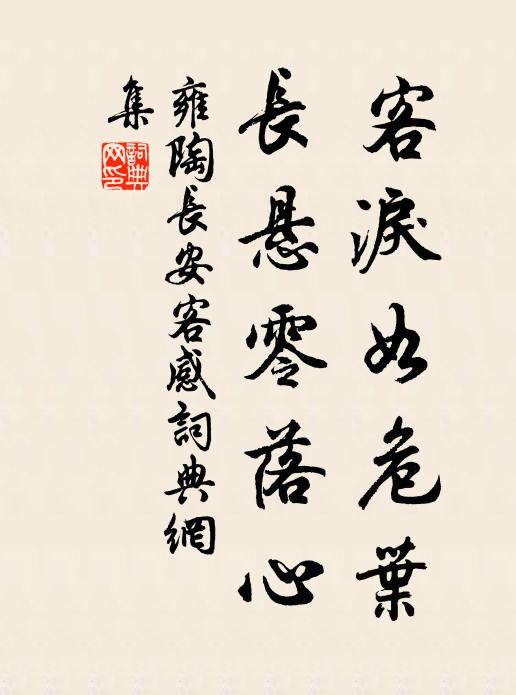 客淚如危葉
長悬零落心
雍陶長安客感詞典網
集
詞典
网印